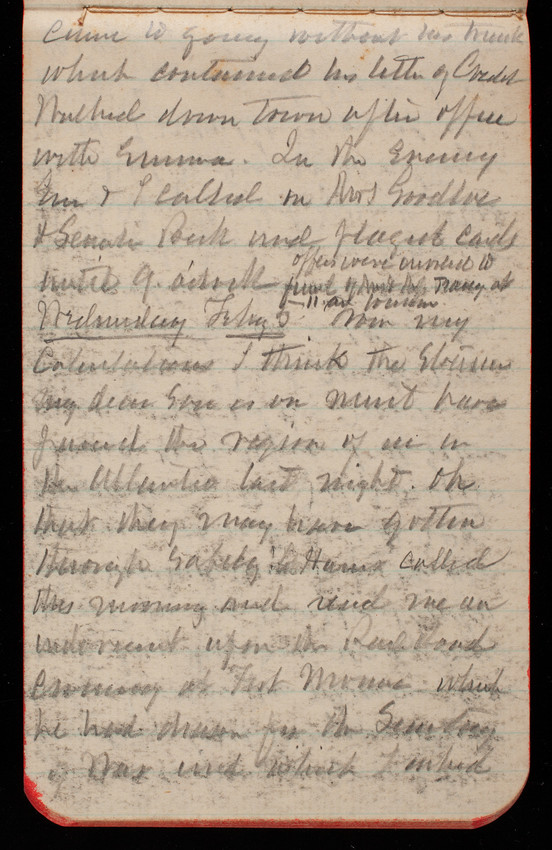 came to going without his trunk
which contained his letter of Credit
Walked down town after office
with Emma. In the Evening
Em & I called on Mrs Goodloe
& Senator Beck and played cards
until 9. o'clock
officers were invited to
funeral of Mrs & Miss Tracy at
11 am
Wednesday Feby 5 From my
Calculations I think the Steamer
my dear Son is on must have
passed the region of ice in
the Atlantic last night. Oh
that they may have gotten
through Safely. Harris called
this morning and read me an
indorsement upon the Rail Road
Crossing at Fort Monroe which
he had drawn for the Secretary
of War and which I asked